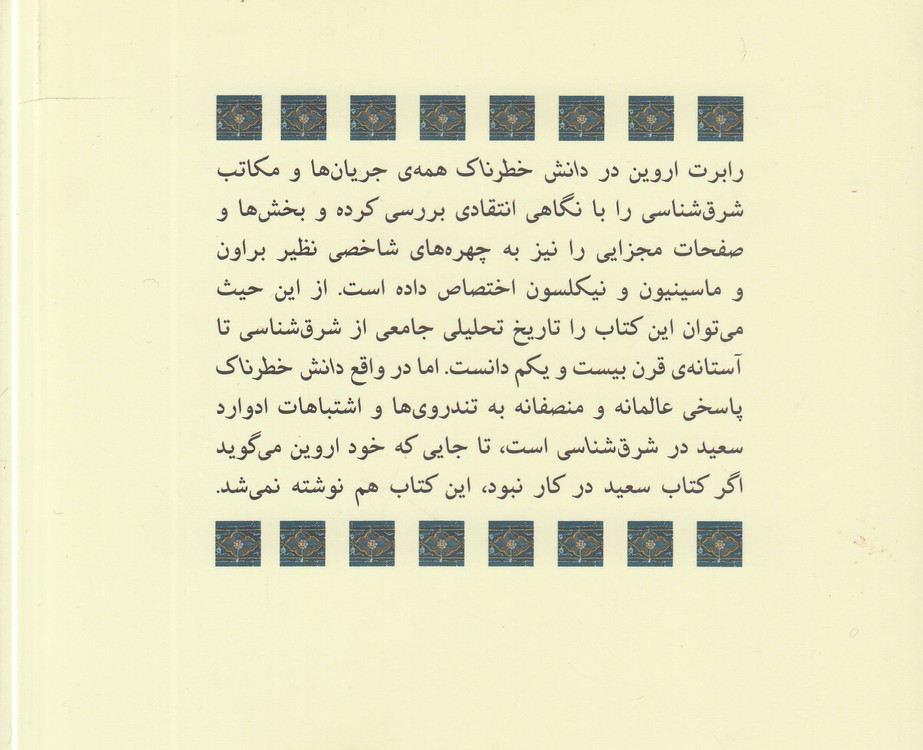 رابرت اروین در دانش خطرناک همه‌ی جریان‌ها و مکاتب
شرق‌شناسی را با نگاهی انتقادی بررسی کرده و بخش‌ها و
صفحات مجزایی را نیز به چهره‌های شاخصی نظیر براون
و ماسینیون و نیکلسون اختصاص داده است. از این حیث
می‌توان این کتاب را تاریخ تحلیلی جامعی از شرق‌شناسی تا
آستانه‌ی قرن بیست و یکم دانست. اما در واقع دانش خطرناک
پاسخی عالمانه و منصفانه به تندروی‌ها و اشتباهات ادوارد
سعید در شرق‌شناسی است، تا جایی که خود اروین می‌گوید
اگر کتاب سعید در کار نبود، این کتاب هم نوشته نمی‌شد.